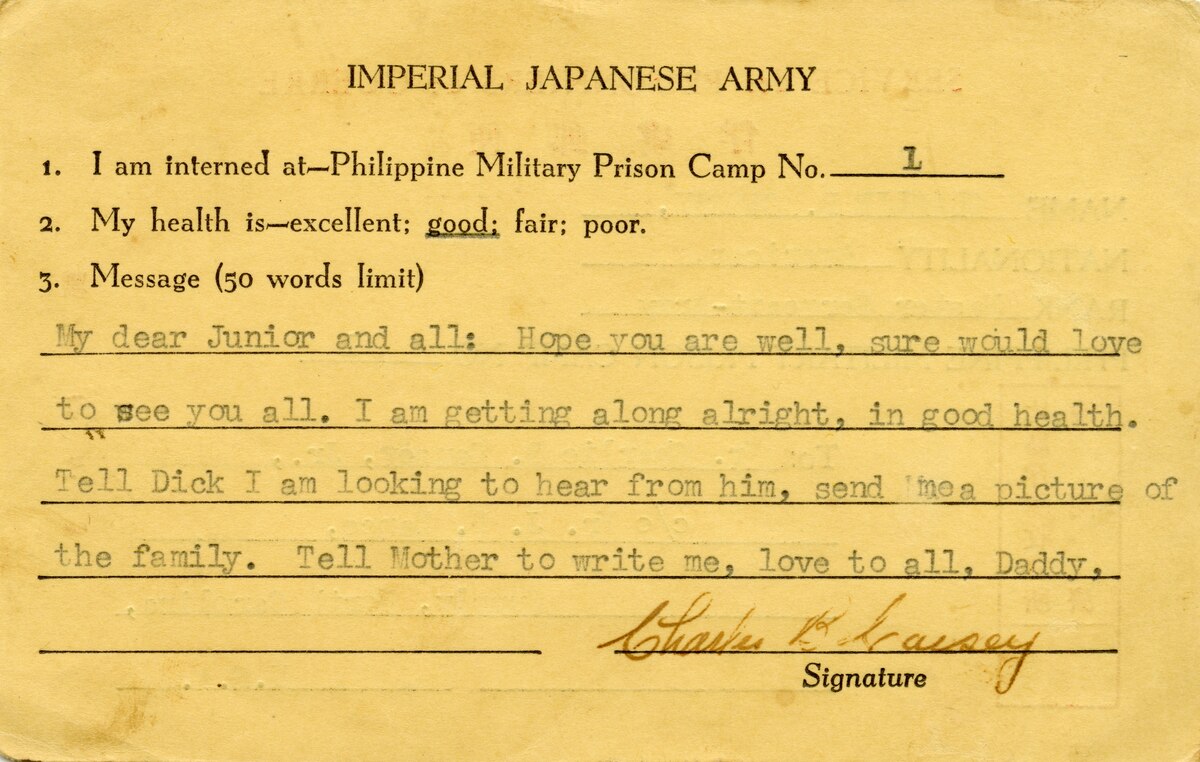 IMPERIAL JAPANESE ARMY
1. I am interned at—Philippine Military Prison Camp No. 1
2. My health is—excellent; good; fair; poor.
3. Message (50 words limit)
My dear Junior and all: Hope you are well, sure would love
to see you all. I am getting along alright, in good health.
Tell Dick I am looking to hear from him, send me a picture of
the family. Tell Mother to write me, love to all, Daddy,
Charles K
Signature